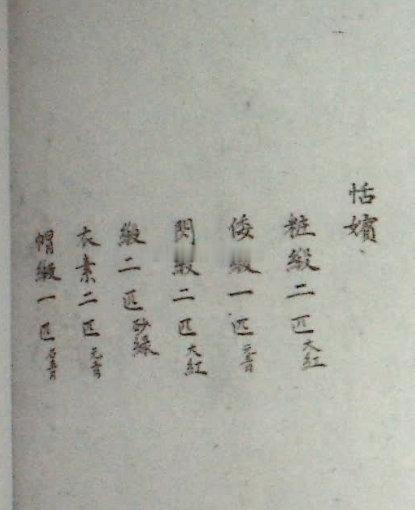 恬嬪
粧緞二匹大紅
倭緞一匹元青
閃緞二匹大紅
緞二匹砂綠
衣素二匹元青
帽緞一匹石青